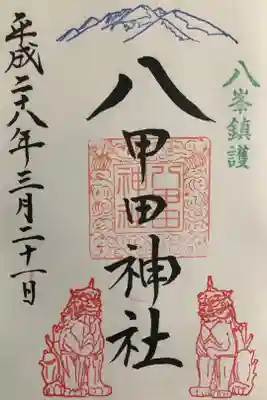 八峯鎮護
八甲田神社
平成二十八年三月二十一日